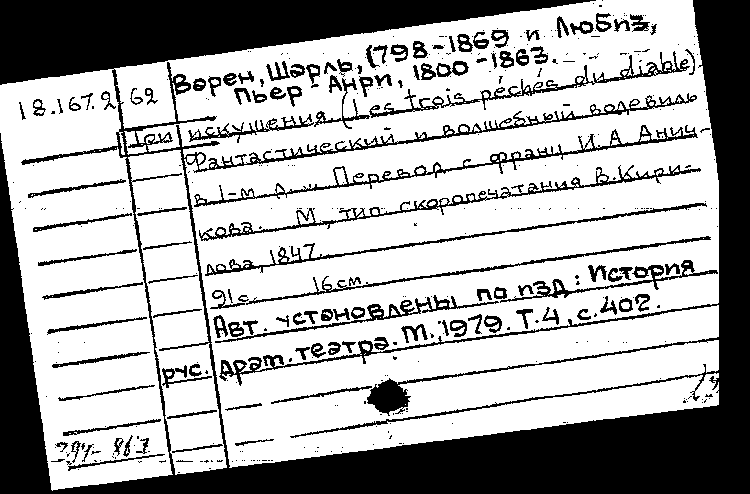 Варен, Шарль, 1798-1869 и Любиз,
Пьер-Анри, 1800-1863.
18.167.2.62
Три искушения. (Les trois péchés du diable)
Фантастический и волшебный водевиль
в 1-м д. Перевод с франц И. А Анич-
кова. М, тип скоропечатания В. Кири-
лова, 1847.
91 с. 16 см.
Авт. установлены по изд: История
рус. драт. театра. М., 1979. Т.4, с.402.